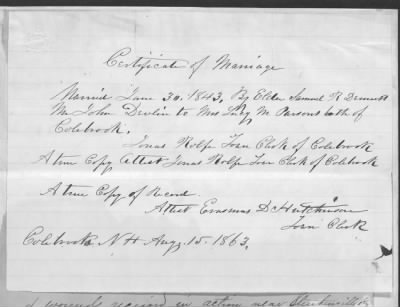 Certificate of Marriage
Married June 30. 1843. By Elder Samuel R
Mr John Devlin to Mrs Lucy M Parsons both of
Colebrook.
Jonas Rolfe Town Clerk of Colebrook
A true Copy Attest Jonas Rolfe Town Clerk of Colebrook
A true Copy of Record.
Attest Erasmus D Hutchinson
Town Clerk
Colebrook NH Aug. 15. 1863.
of wounds received in action near